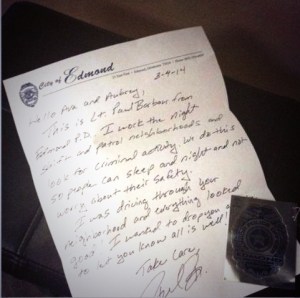 City of Edmond
8-4-14
Hello Ava and Aubrey,
This is Lt. Paul Barbour from
Edmond P.D. I work the night
shift and patrol neighborhoods and
look for criminal activity. We do this
so people can sleep and night and not
worry about their safety.
I was driving through your
neighborhood and everything looked
good. I wanted to drop you a
to let you know all is well!
Take Care,